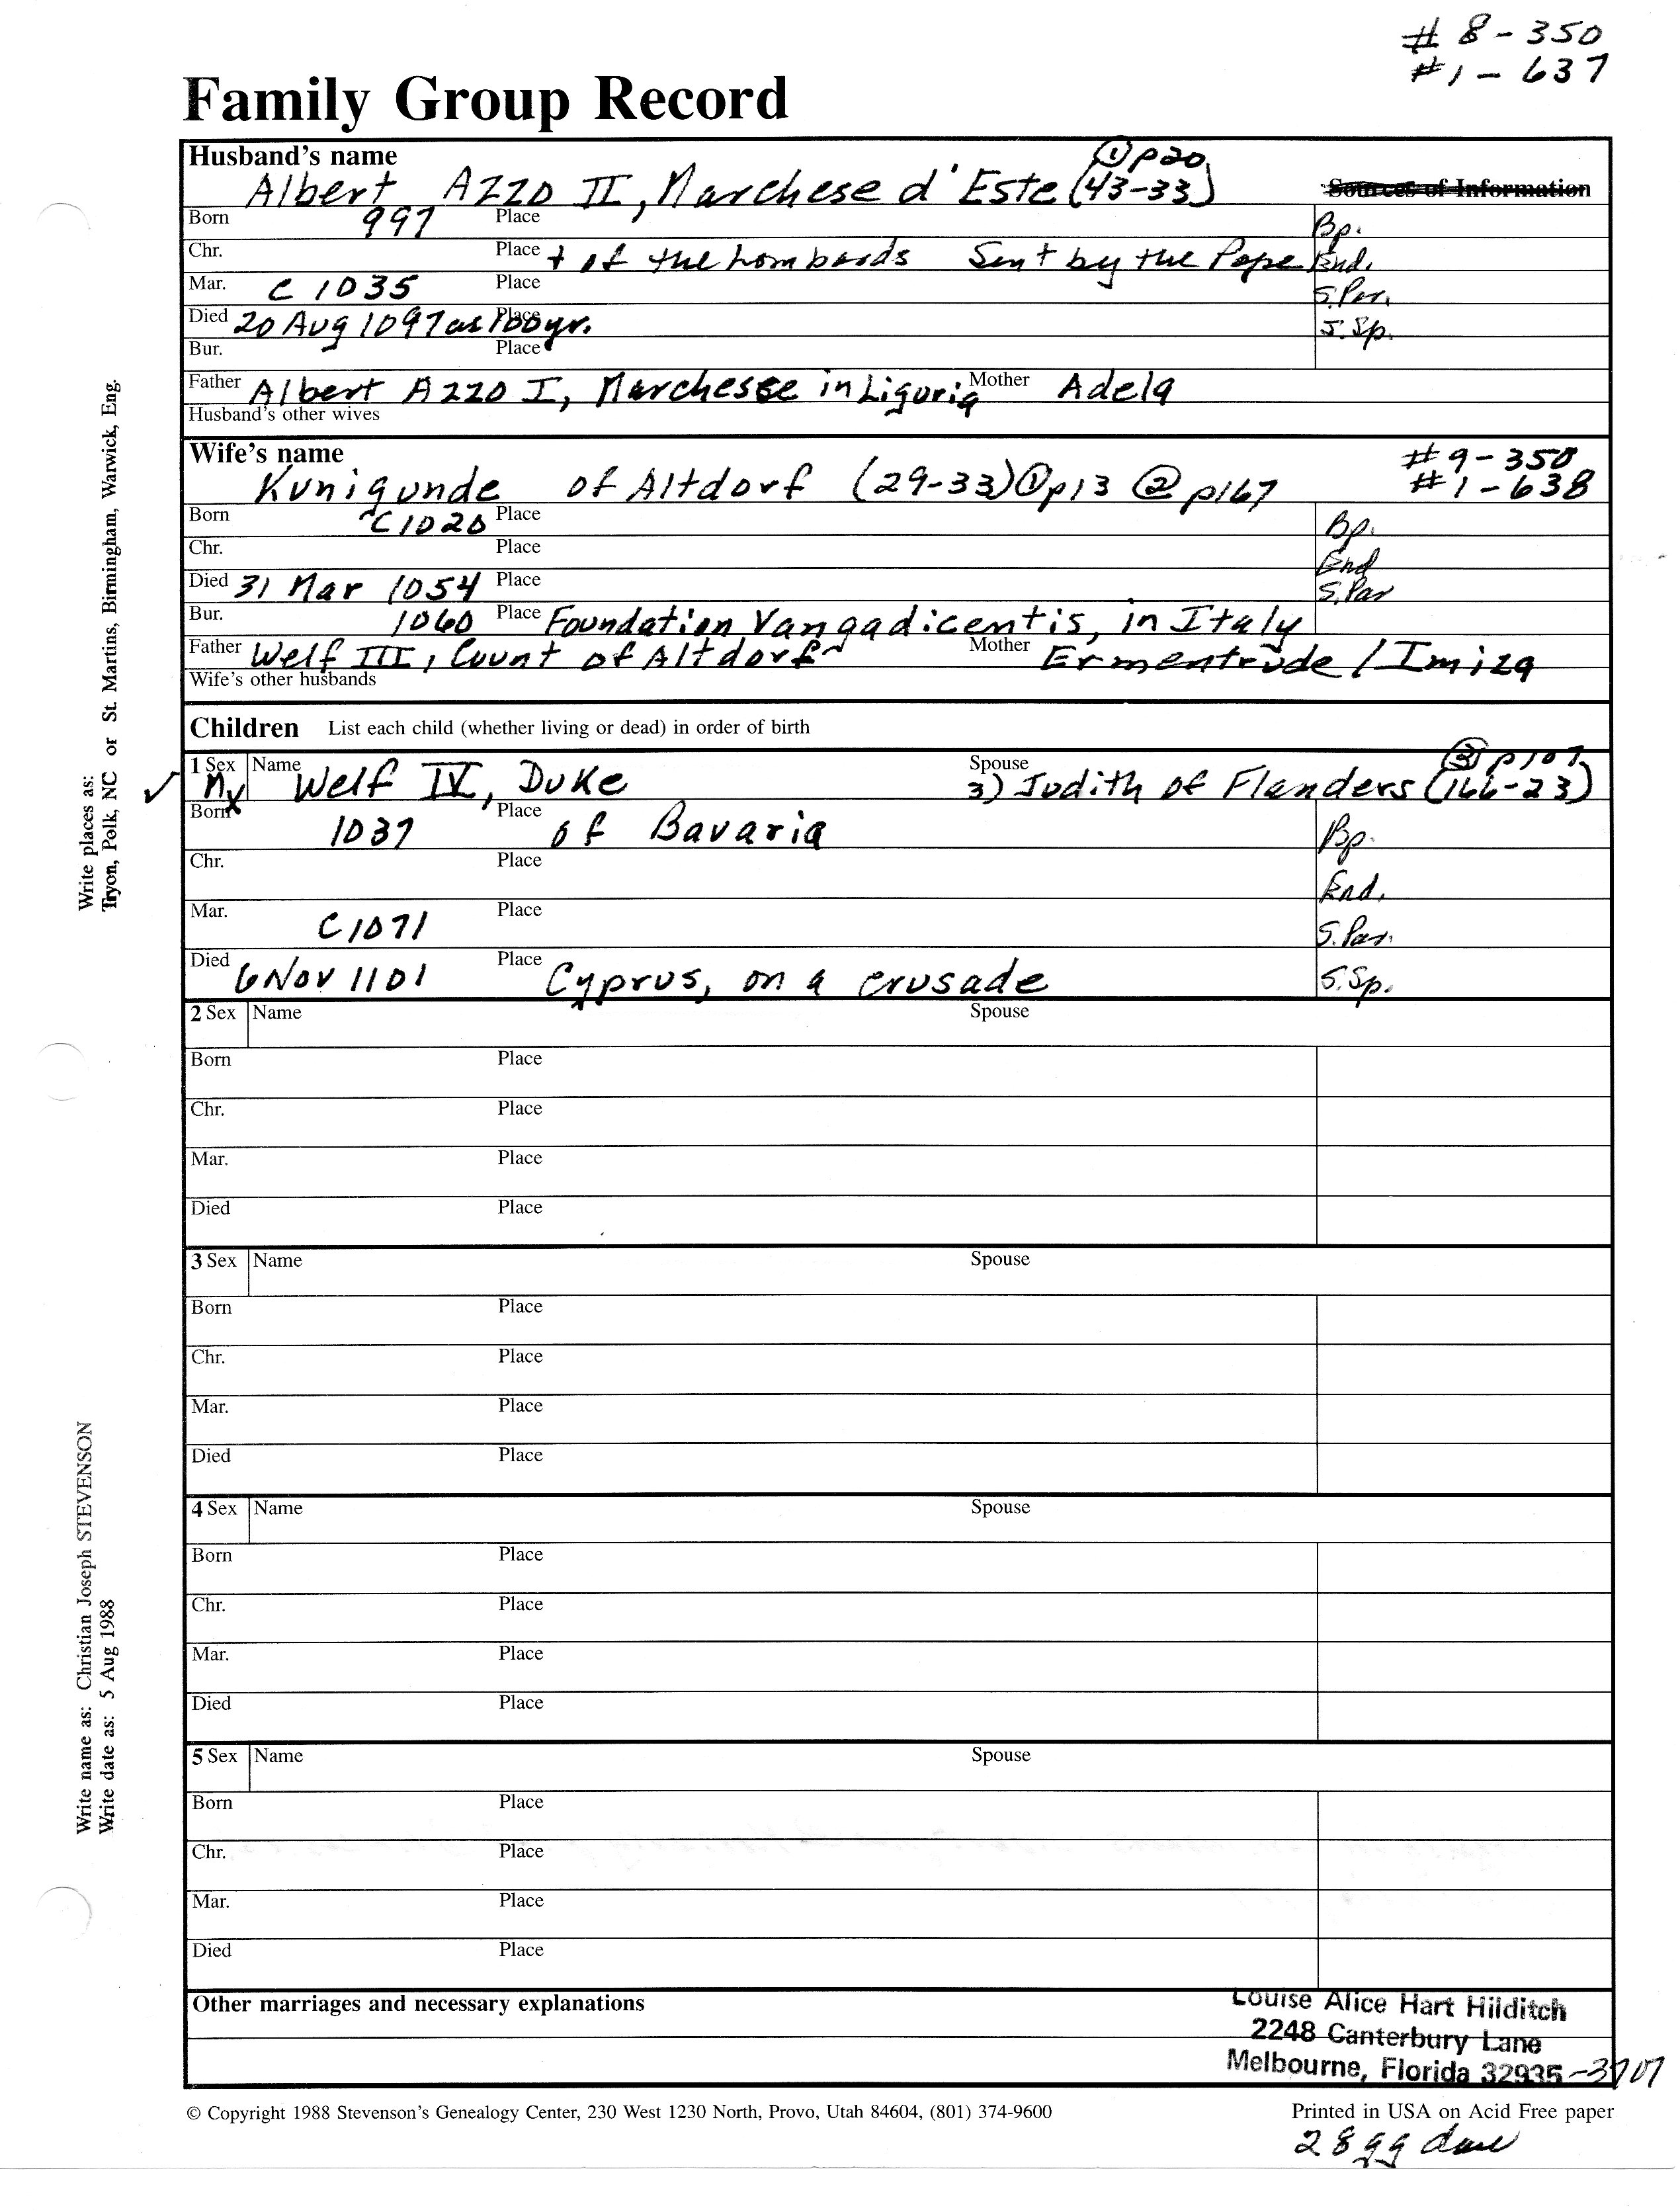 # 8 - 350
# 1 - 637
Family Group Record
Husband's name
① p20
Albert Azzo II, Marchese d'Este (43-33)
Sources of Information
Born 997 Place
Bp.
Chr. Place + of the Lombards Sent by the Pope
End.
Mar. C 1035 Place
S. Par.
Died 20 Aug 1097 as 100 yr. Place
S. Sp.
Bur. Place
Father Albert Azzo I, Marchesse in Liguria Mother Adela
Husband's other wives
Wife's name
# 9 - 350
# 1 - 638
Kunigunde of Altdorf (29-33) ① p13 ② p167
Born C1020 Place
Bp.
Chr. Place
End
Died 31 Mar 1054 Place
S. Par
Bur. 1060 Place Foundation Vangadicentis, in Italy
Father Welf III, Count of Altdorf Mother Ermentrude / Imiza
Wife's other husbands
Children List each child (whether living or dead) in order of birth
③ p107
1 Sex M x Name Welf IV, Duke Spouse 3) Judith of Flanders (166-23)
Born 1037 Place of Bavaria
Bp.
Chr. Place
End.
Mar. C1071 Place
S. Par.
Died 6 Nov 1101 Place Cyprus, on a crusade
S. Sp.
2 Sex Name Spouse
Born Place
Chr. Place
Mar. Place
Died Place
3 Sex Name Spouse
Born Place
Chr. Place
Mar. Place
Died Place
4 Sex Name Spouse
Born Place
Chr. Place
Mar. Place
Died Place
5 Sex Name Spouse
Born Place
Chr. Place
Mar. Place
Died Place
Other marriages and necessary explanations
Louise Alice Hart Hilditch
2248 Canterbury Lane
Melbourne, Florida 32935 -3707
© Copyright 1988 Stevenson's Genealogy Center, 230 West 1230 North, Provo, Utah 84604, (801) 374-9600
Printed in USA on Acid Free paper
Write places as:
Tryon, Polk, NC or St. Martins, Birmingham, Warwick, Eng.
Write name as: Christian Joseph STEVENSON
Write date as: 5 Aug 1988